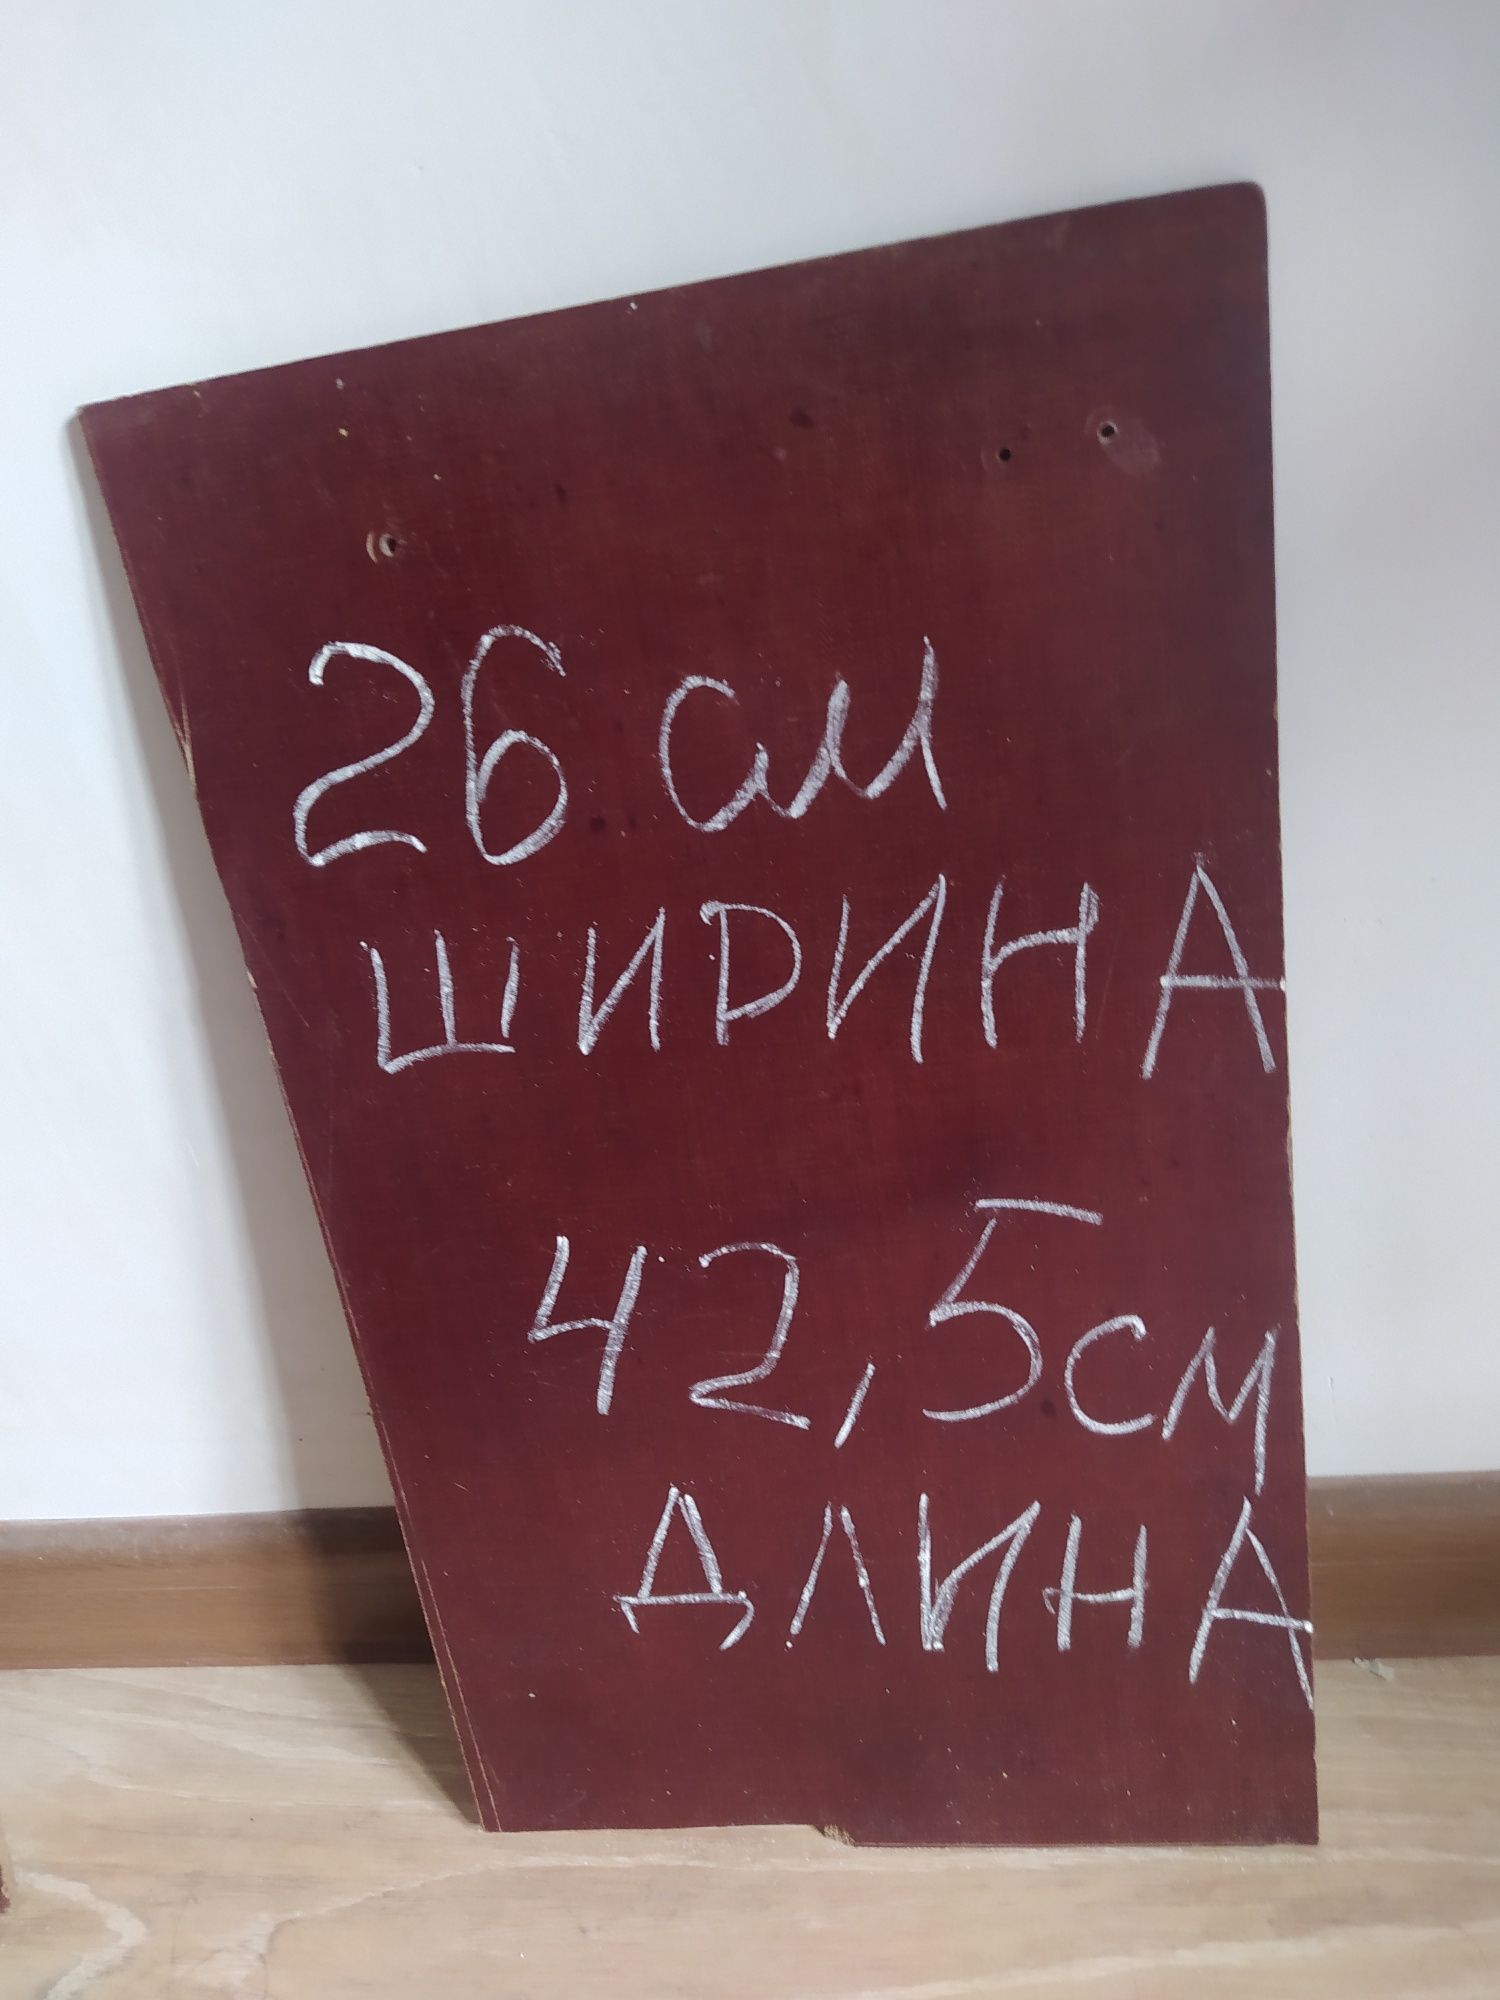 26 см
ШИРИНА
42,5см
ДЛИНА